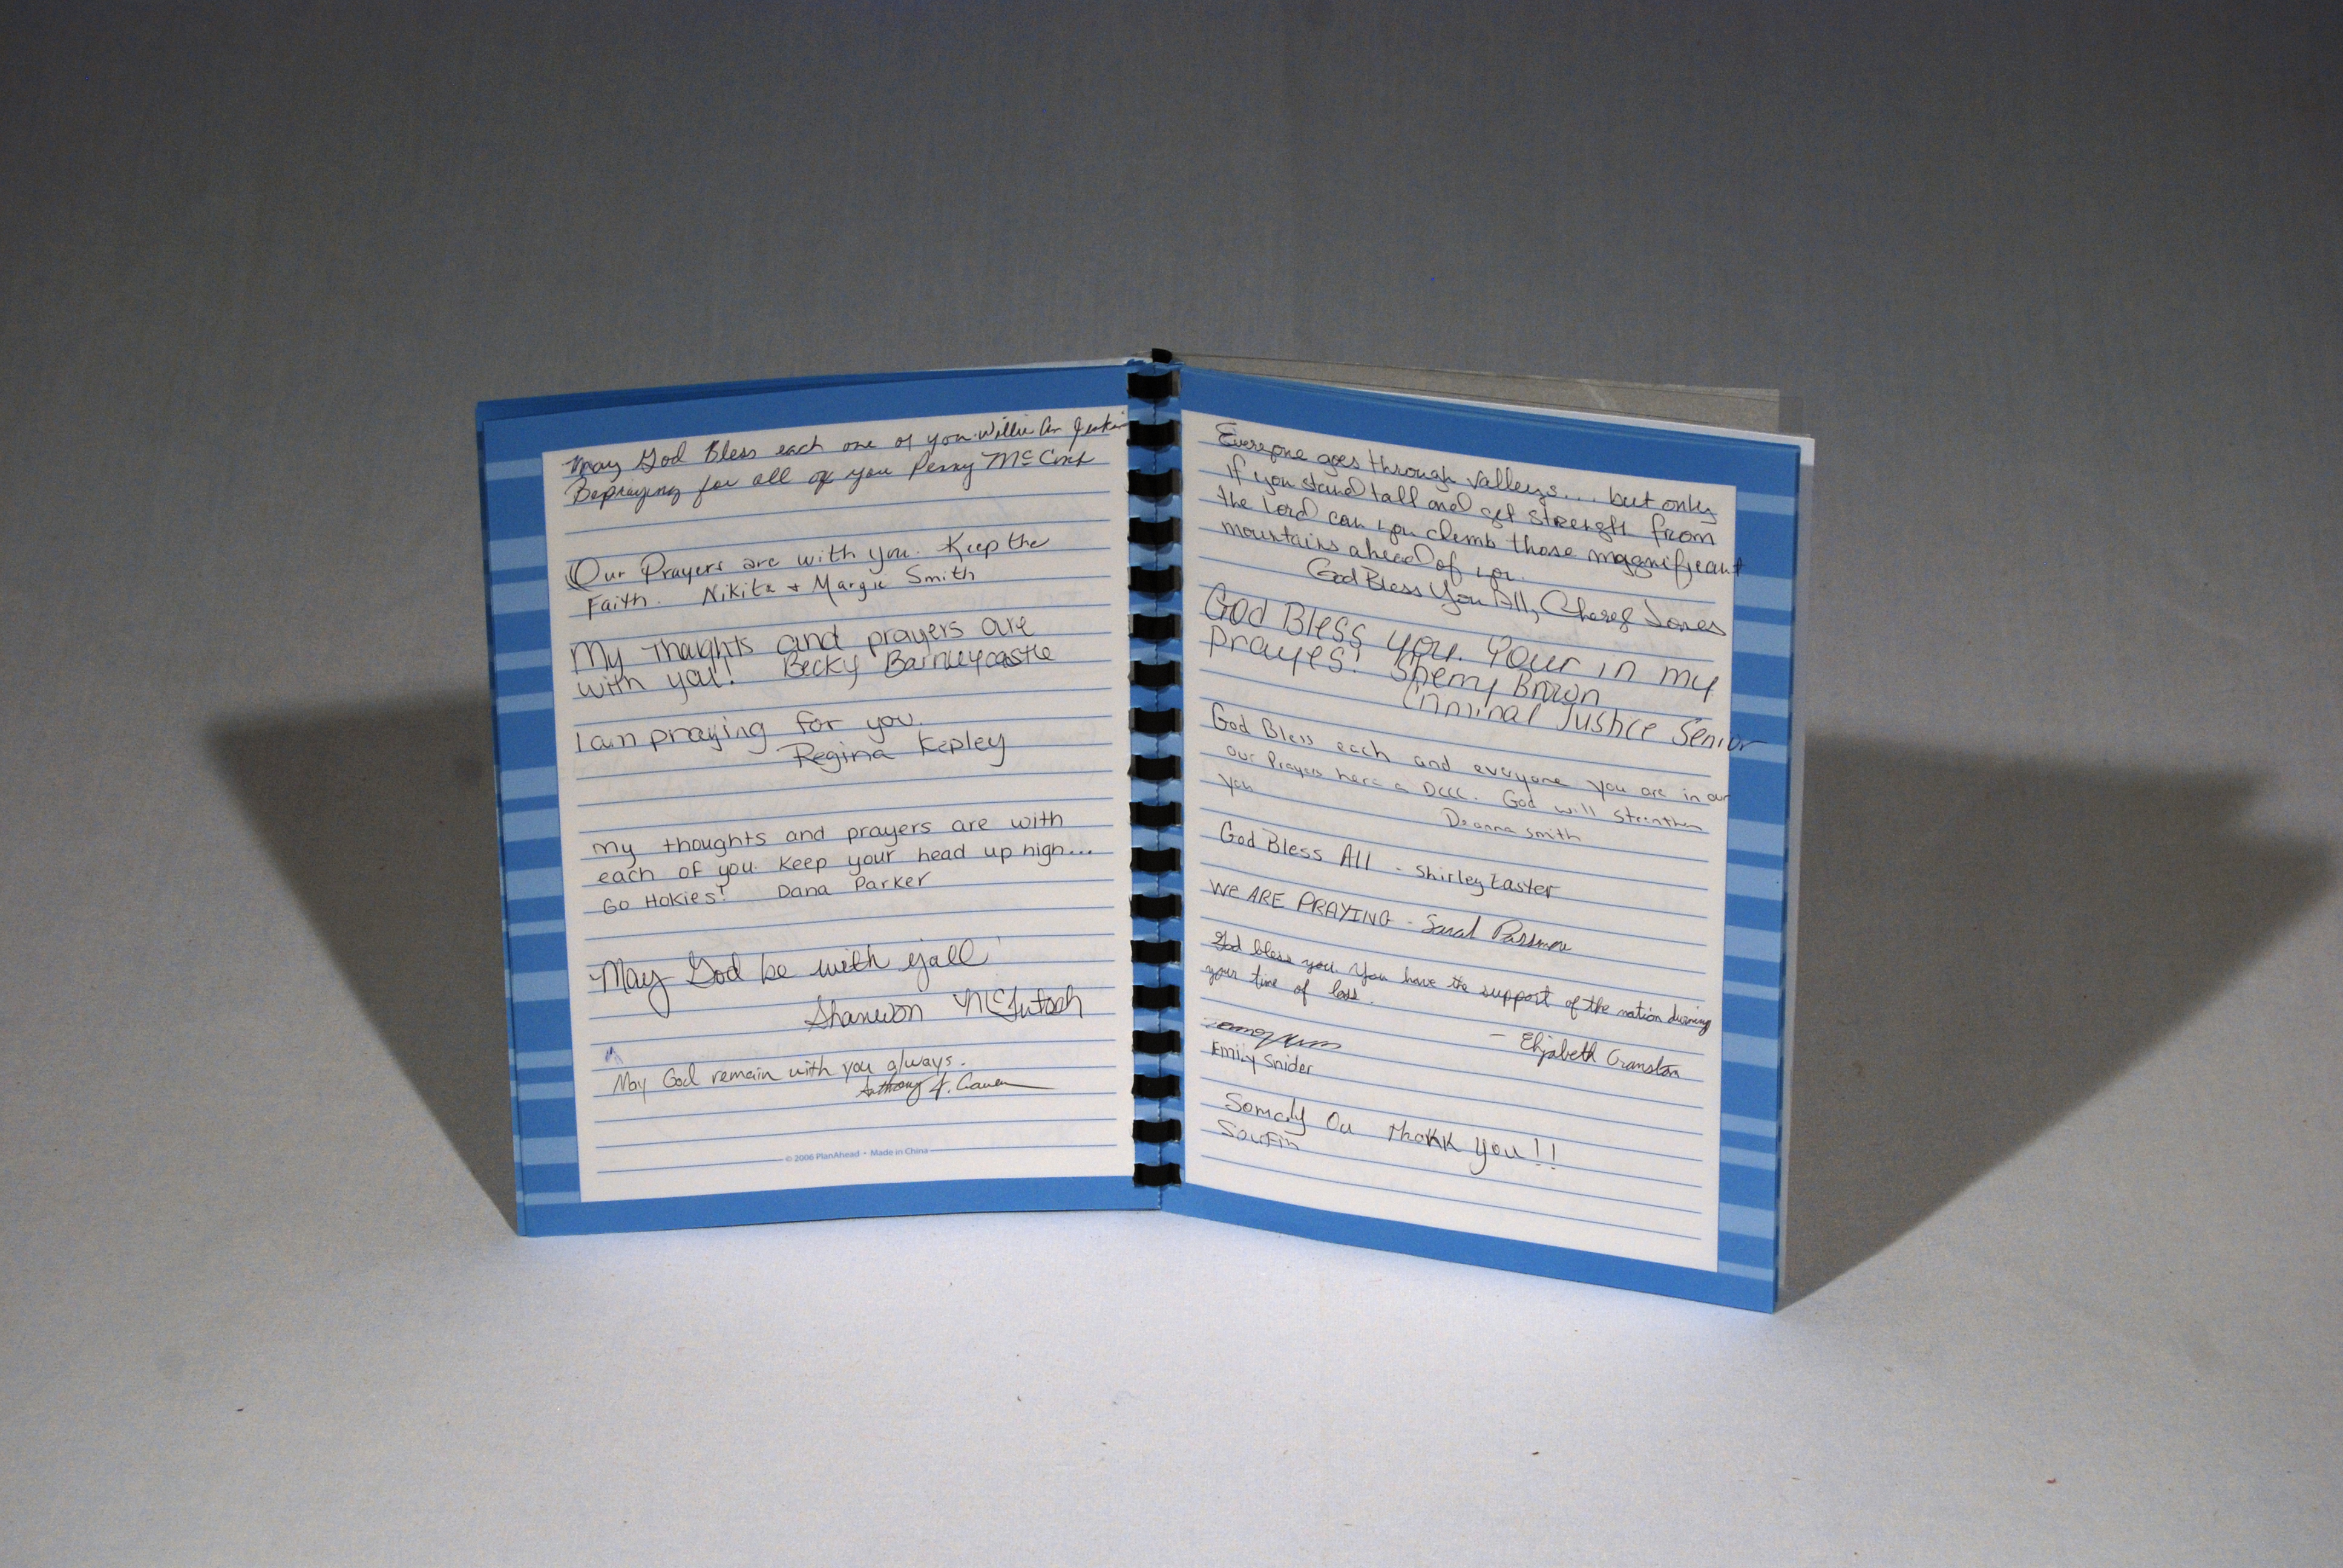 May God Bless each one of you. Willie
Be praying for all of you Penny McCork
Our Prayers are with you. Keep the
Faith. Nikita + Margie Smith
My thoughts and prayers are
with you! Becky Barneycastle
I am praying for you.
Regina Kepley
my thoughts and prayers are with
each of you. Keep your head up high...
Go Hokies! Dana Parker
May God be with y'all
Shannon McIntosh
May God remain with you always.
Anthony J.
© 2006 PlanAhead • Made in China
Everyone goes through valleys... but only
if you stand tall and get strength from
the Lord can you climb those magnificant
mountains ahead of you.
God Bless You All, Cheryl Jones
God Bless you. Your in my
prayes! Sherry Brown
Criminal Justice Senior
God Bless each and everyone you are in our
our Prayers here a DCCC. God will strenthen
you
Deanna Smith
God Bless All - Shirley Easter
WE ARE PRAYING - Sarah Passmore
God bless you. You have the support of the nation during
your time of loss.
- Elizabeth Cranston
Emily Snider
Somaly Ou Thank You!!